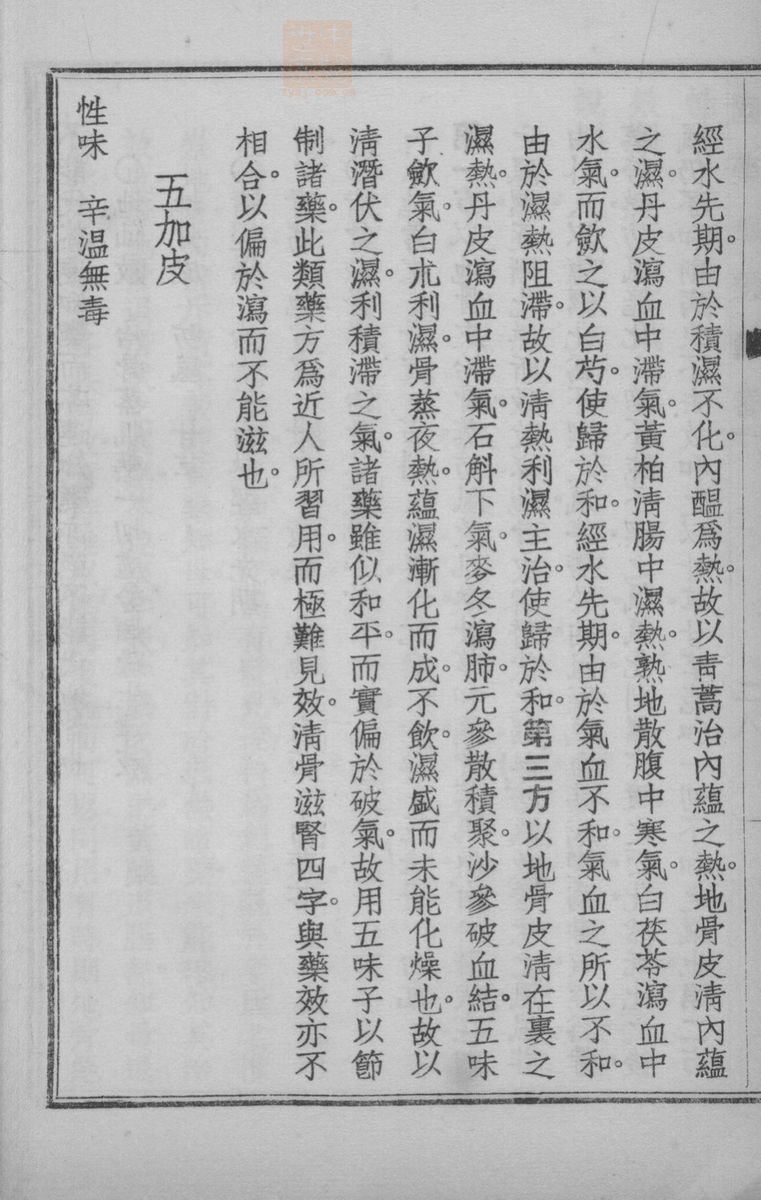 經水先期。由於積濕不化。內醖爲熱。故以靑蒿治內蘊之熱。地骨皮淸內蘊
之濕。丹皮瀉血中滯氣。黃柏淸腸中濕熱。熟地散腹中寒氣。白茯苓瀉血中
水氣。而歛之以白芍。使歸於和。經水先期。由於氣血不和。氣血之所以不和。
由於濕熱阻滯。故以淸熱利濕主治。使歸於和。第三方以地骨皮淸在裏之
濕熱。丹皮瀉血中滯氣。石斛下氣。麥冬瀉肺。元參散積聚。沙參破血結。五味
子歛氣。白朮利濕。骨蒸夜熱。蘊濕漸化而成。不飮。濕盛而未能化燥也。故以
淸潛伏之濕。利積滯之氣。諸藥雖似和平。而實偏於破氣。故用五味子以節
制諸藥。此類藥方爲近人所習用。而極難見效。淸骨滋腎四字。與藥效亦不
相合。以偏於瀉而不能滋也。
五加皮
性味 辛温無毒